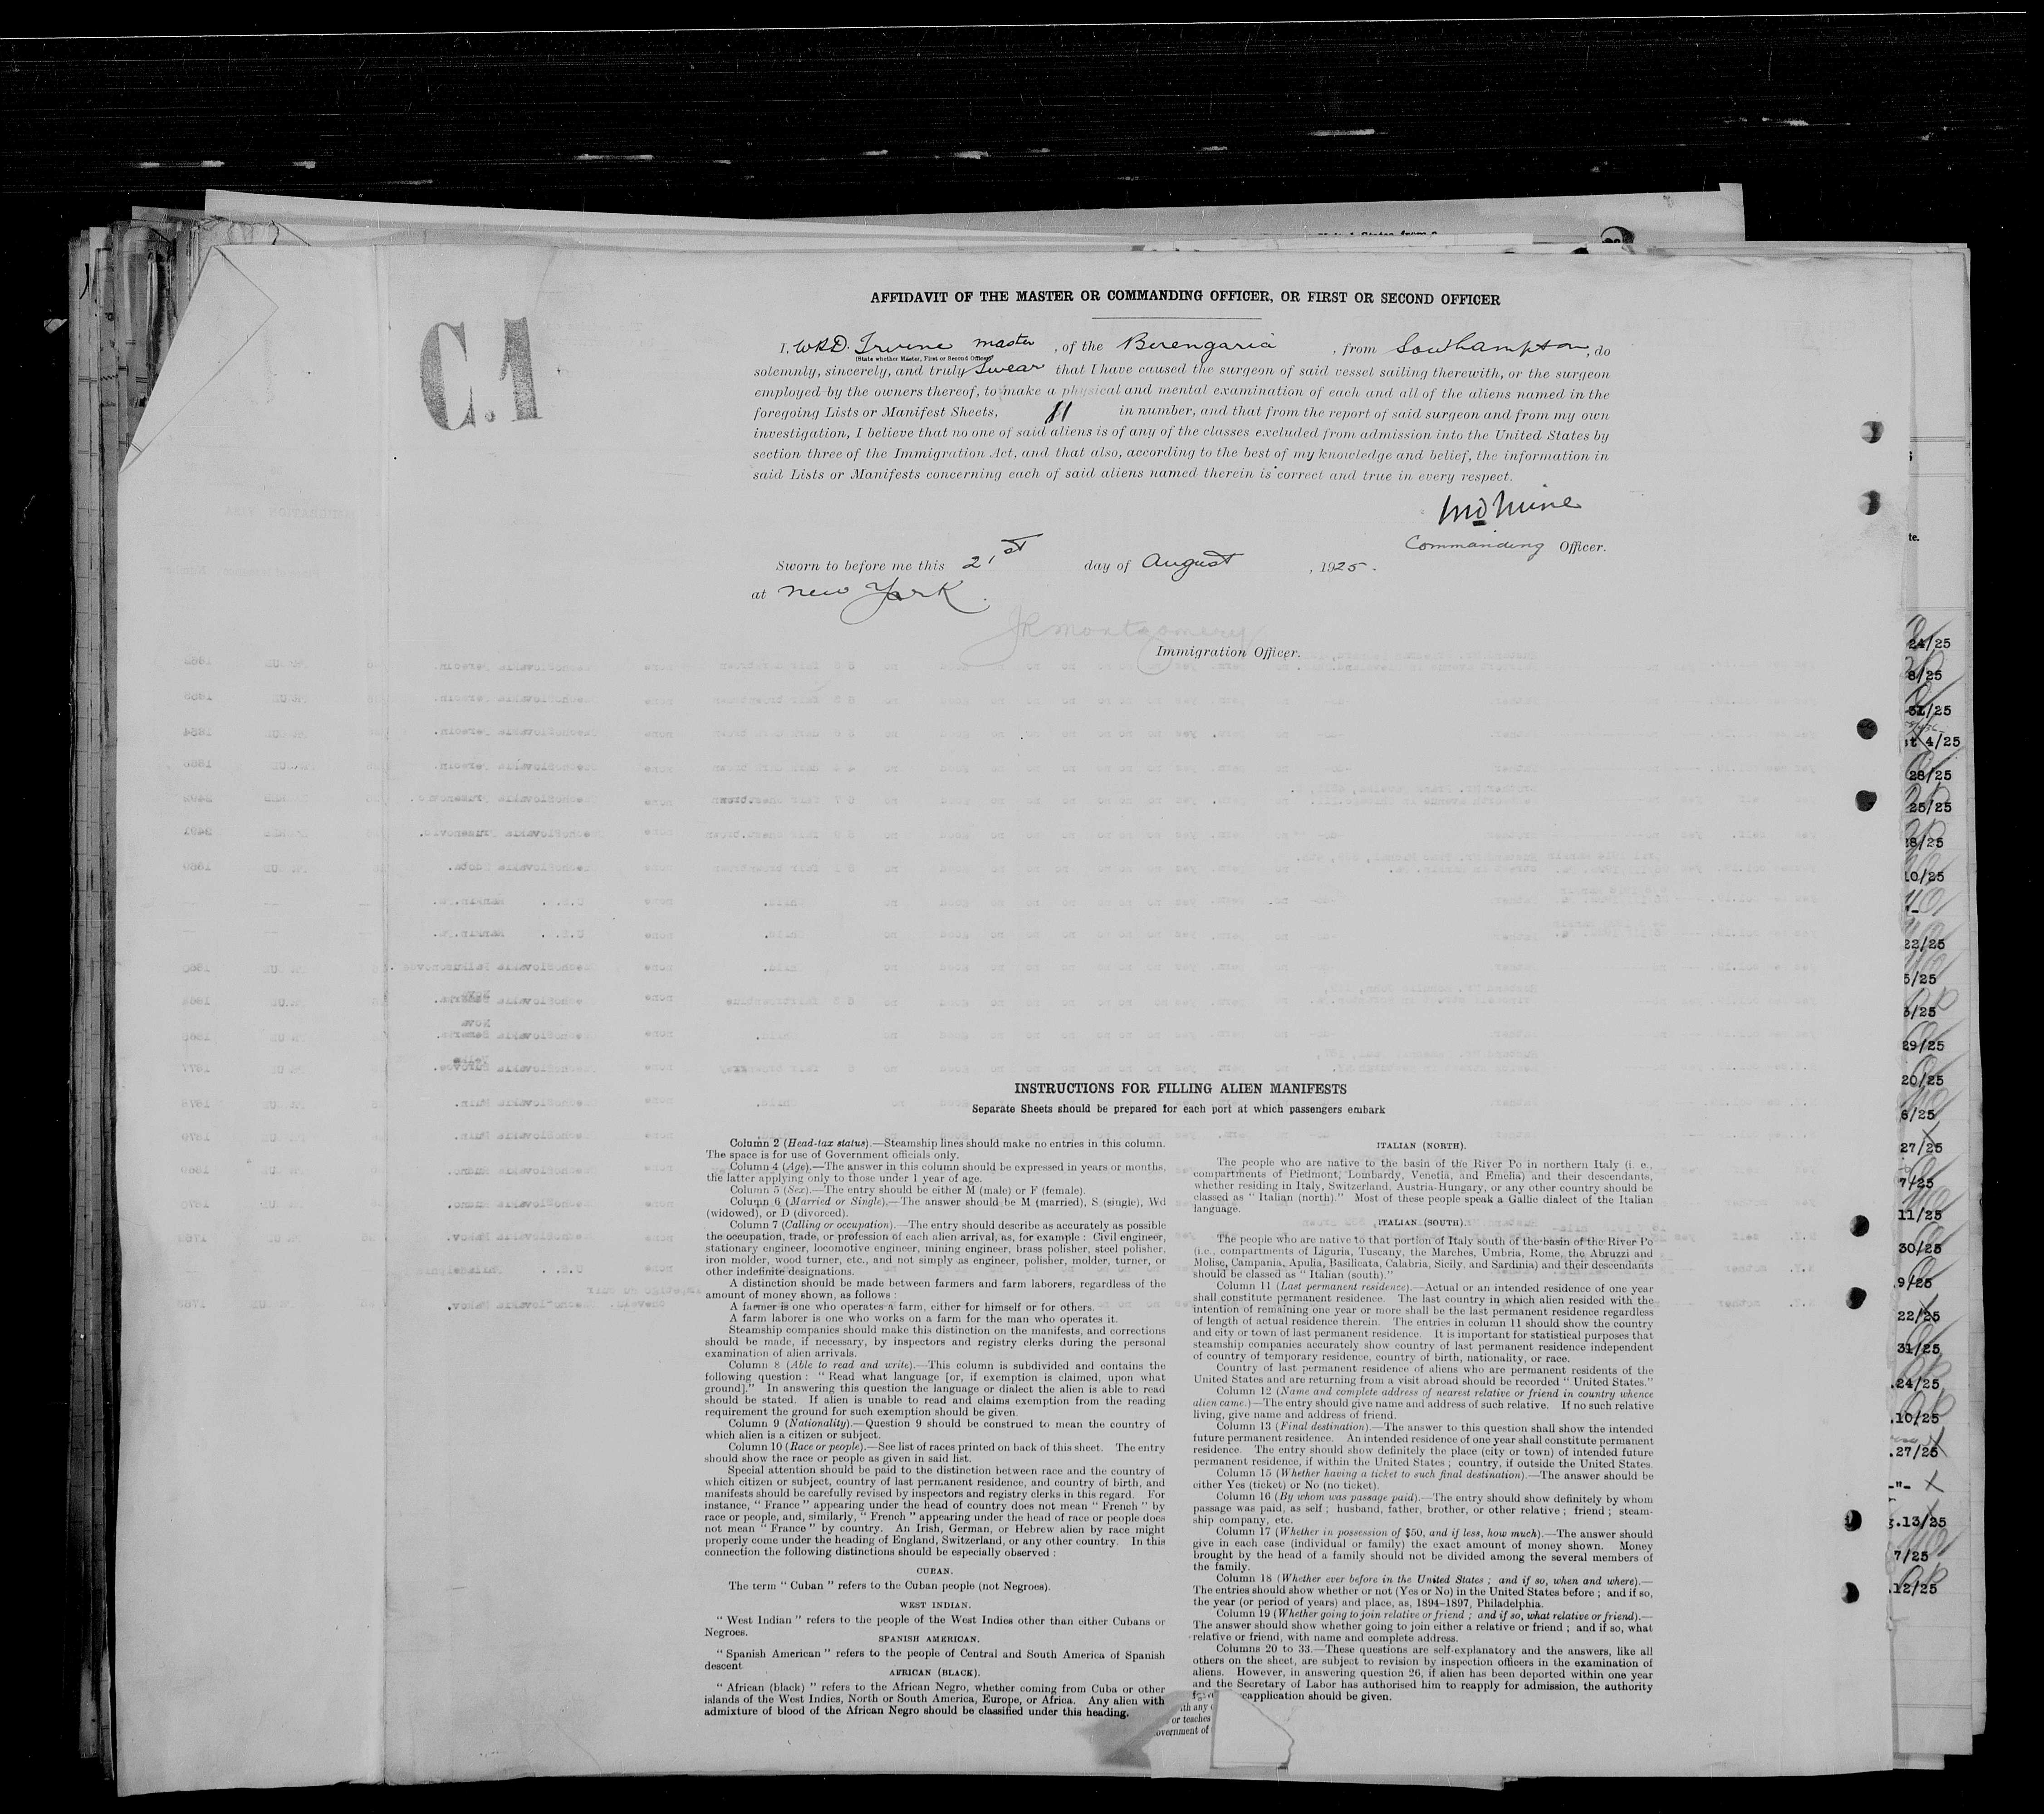 AFFIDAVIT OF THE MASTER OR COMMANDING OFFICER, OR FIRST OR SECOND OFFICER
C.1
I, W.R.D. Irvine master, of the Berengaria, from Southampton, do
(State whether Master, First or Second Officer)
solemnly, sincerely, and truly swear that I have caused the surgeon of said vessel sailing therewith, or the surgeon
employed by the owners thereof, to make a physical and mental examination of each and all of the aliens named in the
foregoing Lists or Manifest Sheets, 11 in number, and that from the report of said surgeon and from my own
investigation, I believe that no one of said aliens is of any of the classes excluded from admission into the United States by
section three of the Immigration Act, and that also, according to the best of my knowledge and belief, the information in
said Lists or Manifests concerning each of said aliens named therein is correct and true in every respect.
Commanding Officer.
Sworn to before me this 21st day of August, 1925.
at New York.
JR Montgomery
Immigration Officer.
INSTRUCTIONS FOR FILLING ALIEN MANIFESTS
Separate Sheets should be prepared for each port at which passengers embark
Column 2 (Head-tax status).—Steamship lines should make no entries in this column.
The space is for use of Government officials only.
Column 4 (Age).—The answer in this column should be expressed in years or months,
the latter applying only to those under 1 year of age.
Column 5 (Sex).—The entry should be either M (male) or F (female).
Column 6 (Married or Single).—The answer should be M (married), S (single), Wd
(widowed), or D (divorced).
Column 7 (Calling or occupation).—The entry should describe as accurately as possible
the occupation, trade, or profession of each alien arrival, as, for example : Civil engineer,
stationary engineer, locomotive engineer, mining engineer, brass polisher, steel polisher,
iron molder, wood turner, etc., and not simply as engineer, polisher, molder, turner, or
other indefinite designations.
A distinction should be made between farmers and farm laborers, regardless of the
amount of money shown, as follows :
A farmer is one who operates a farm, either for himself or for others.
A farm laborer is one who works on a farm for the man who operates it.
Steamship companies should make this distinction on the manifests, and corrections
should be made, if necessary, by inspectors and registry clerks during the personal
examination of alien arrivals.
Column 8 (Able to read and write).—This column is subdivided and contains the
following question : " Read what language [or, if exemption is claimed, upon what
ground]." In answering this question the language or dialect the alien is able to read
should be stated. If alien is unable to read and claims exemption from the reading
requirement the ground for such exemption should be given.
Column 9 (Nationality).—Question 9 should be construed to mean the country of
which alien is a citizen or subject.
Column 10 (Race or people).—See list of races printed on back of this sheet. The entry
should show the race or people as given in said list.
Special attention should be paid to the distinction between race and the country of
which citizen or subject, country of last permanent residence, and country of birth, and
manifests should be carefully revised by inspectors and registry clerks in this regard. For
instance, " France " appearing under the head of country does not mean " French " by
race or people, and, similarly, " French " appearing under the head of race or people does
not mean " France " by country. An Irish, German, or Hebrew alien by race might
properly come under the heading of England, Switzerland, or any other country. In this
connection the following distinctions should be especially observed :
CUBAN.
The term " Cuban " refers to the Cuban people (not Negroes).
WEST INDIAN.
" West Indian " refers to the people of the West Indies other than either Cubans or
Negroes.
SPANISH AMERICAN.
" Spanish American " refers to the people of Central and South America of Spanish
descent
AFRICAN (BLACK).
" African (black) " refers to the African Negro, whether coming from Cuba or other
islands of the West Indies, North or South America, Europe, or Africa. Any alien with
admixture of blood of the African Negro should be classified under this heading.
ITALIAN (NORTH).
The people who are native to the basin of the River Po in northern Italy (i. e.,
compartments of Piedmont, Lombardy, Venetia, and Emelia) and their descendants,
whether residing in Italy, Switzerland, Austria-Hungary, or any other country should be
classed as " Italian (north)." Most of these people speak a Gallic dialect of the Italian
language.
ITALIAN (SOUTH).
The people who are native to that portion of Italy south of the basin of the River Po
(i.e., compartments of Liguria, Tuscany, the Marches, Umbria, Rome, the Abruzzi and
Molise, Campania, Apulia, Basilicata, Calabria, Sicily, and Sardinia) and their descendants
should be classed as " Italian (south)."
Column 11 (Last permanent residence).—Actual or an intended residence of one year
shall constitute permanent residence. The last country in which alien resided with the
intention of remaining one year or more shall be the last permanent residence regardless
of length of actual residence therein. The entries in column 11 should show the country
and city or town of last permanent residence. It is important for statistical purposes that
steamship companies accurately show country of last permanent residence independent
of country of temporary residence, country of birth, nationality, or race.
Country of last permanent residence of aliens who are permanent residents of the
United States and are returning from a visit abroad should be recorded " United States."
Column 12 (Name and complete address of nearest relative or friend in country whence
alien came.)—The entry should give name and address of such relative. If no such relative
living, give name and address of friend.
Column 13 (Final destination).—The answer to this question shall show the intended
future permanent residence. An intended residence of one year shall constitute permanent
residence. The entry should show definitely the place (city or town) of intended future
permanent residence, if within the United States ; country, if outside the United States.
Column 15 (Whether having a ticket to such final destination).—The answer should be
either Yes (ticket) or No (no ticket).
Column 16 (By whom was passage paid).—The entry should show definitely by whom
passage was paid, as self ; husband, father, brother, or other relative ; friend ; steam-
ship company, etc.
Column 17 (Whether in possession of $50, and if less, how much).—The answer should
give in each case (individual or family) the exact amount of money shown. Money
brought by the head of a family should not be divided among the several members of
the family.
Column 18 (Whether ever before in the United States ; and if so, when and where).—
The entries should show whether or not (Yes or No) in the United States before ; and if so,
the year (or period of years) and place, as, 1894-1897, Philadelphia.
Column 19 (Whether going to join relative or friend ; and if so, what relative or friend).—
The answer should show whether going to join either a relative or friend ; and if so, what
relative or friend, with name and complete address.
Columns 20 to 33.—These questions are self-explanatory and the answers, like all
others on the sheet, are subject to revision by inspection officers in the examination of
aliens. However, in answering question 26, if alien has been deported within one year
and the Secretary of Labor has authorised him to reapply for admission, the authority
reapplication should be given.
ith any
or teaches
overnment of
te.
24/25
8/25
31/25
st 4/25
28/25
25/25
18/25
10/25
22/25
5/25
3/25
29/25
20/25
6/25
27/25
7/25
11/25
30/25
9/25
22/25
31/25
.24/25
.10/25
.27/25
-"-
.13/25
7/25
.12/25